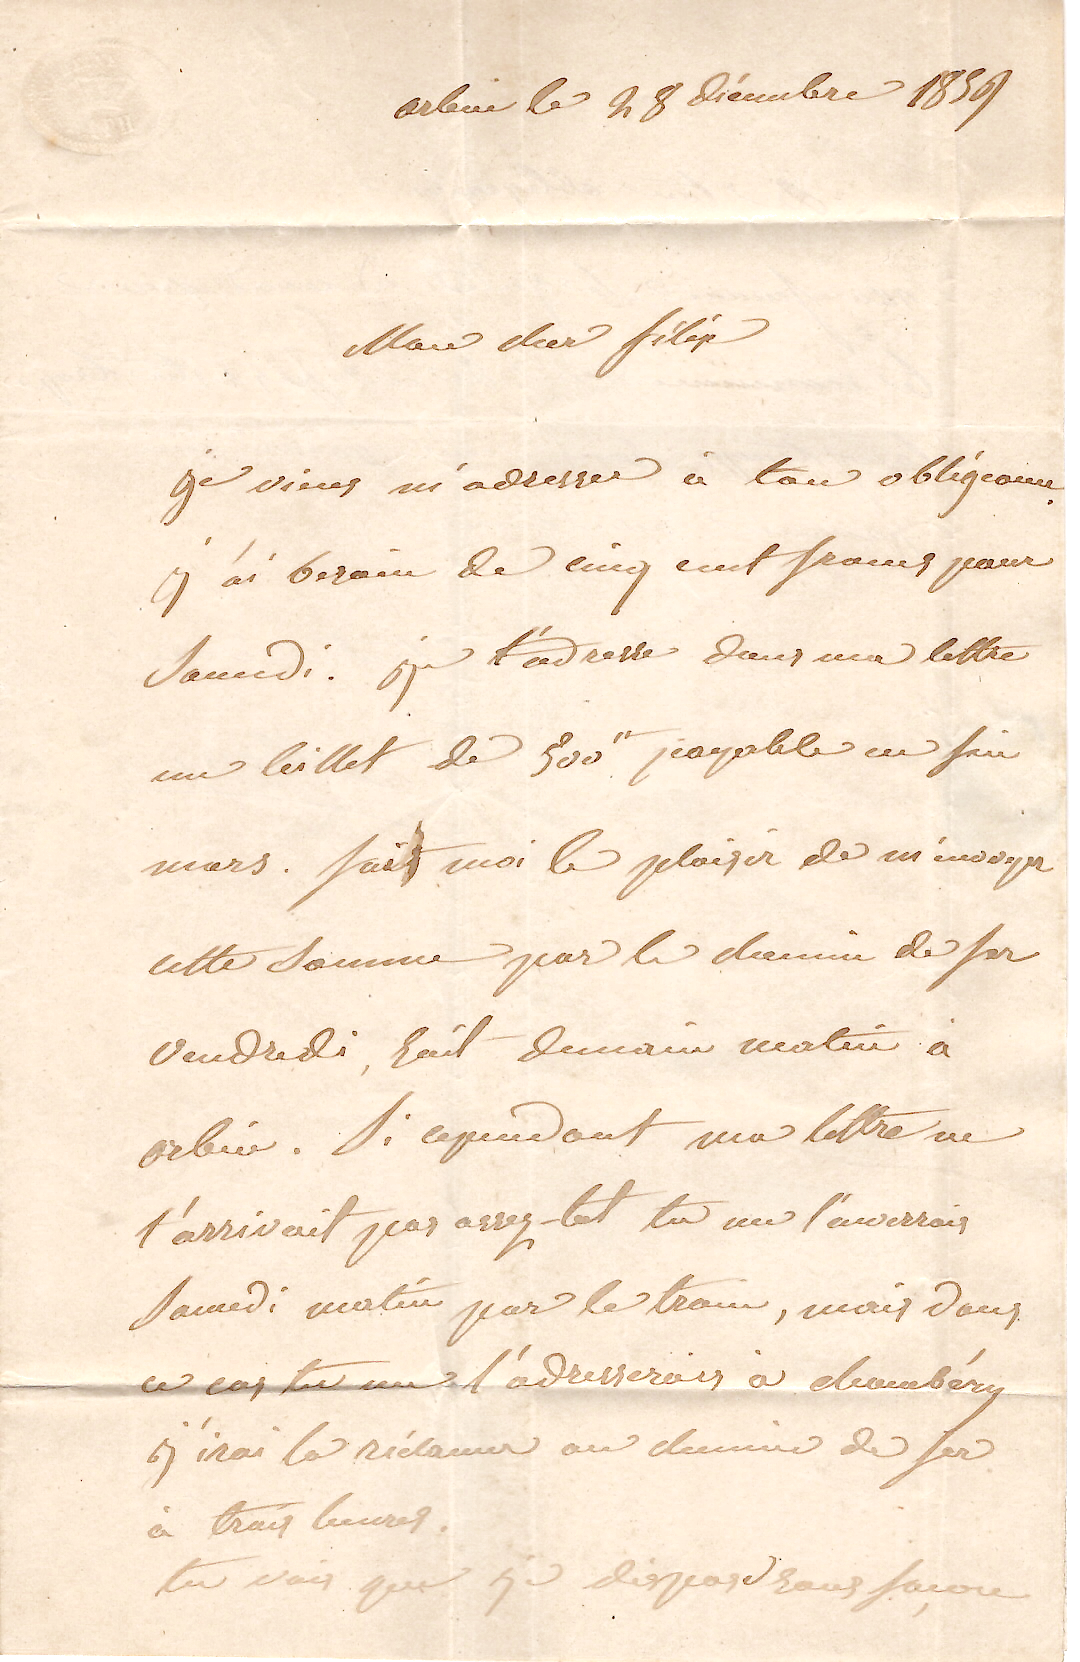 arbin le 28 décembre 1859
Mon cher félix
je viens m'adresser à ton obligeance.
j'ai besoin de cinq cent francs pour
Samedi. je t'adresse dans ma lettre
un billet de 500 payable en fin
mars. fais moi le plaisir de m'envoyer
cette somme par le chemin de fer
Vendredi, soit demain matin à
arbin. Si cependant ma lettre ne
t'arrivait pas assez tot tu me l'enverrais
Samedi matin par le train, mais dans
ce cas tu me l'adresserais à chambéry
j'irai la réclamer au chemin de fer
à trois heures.
tu vois que je dispose sans façon